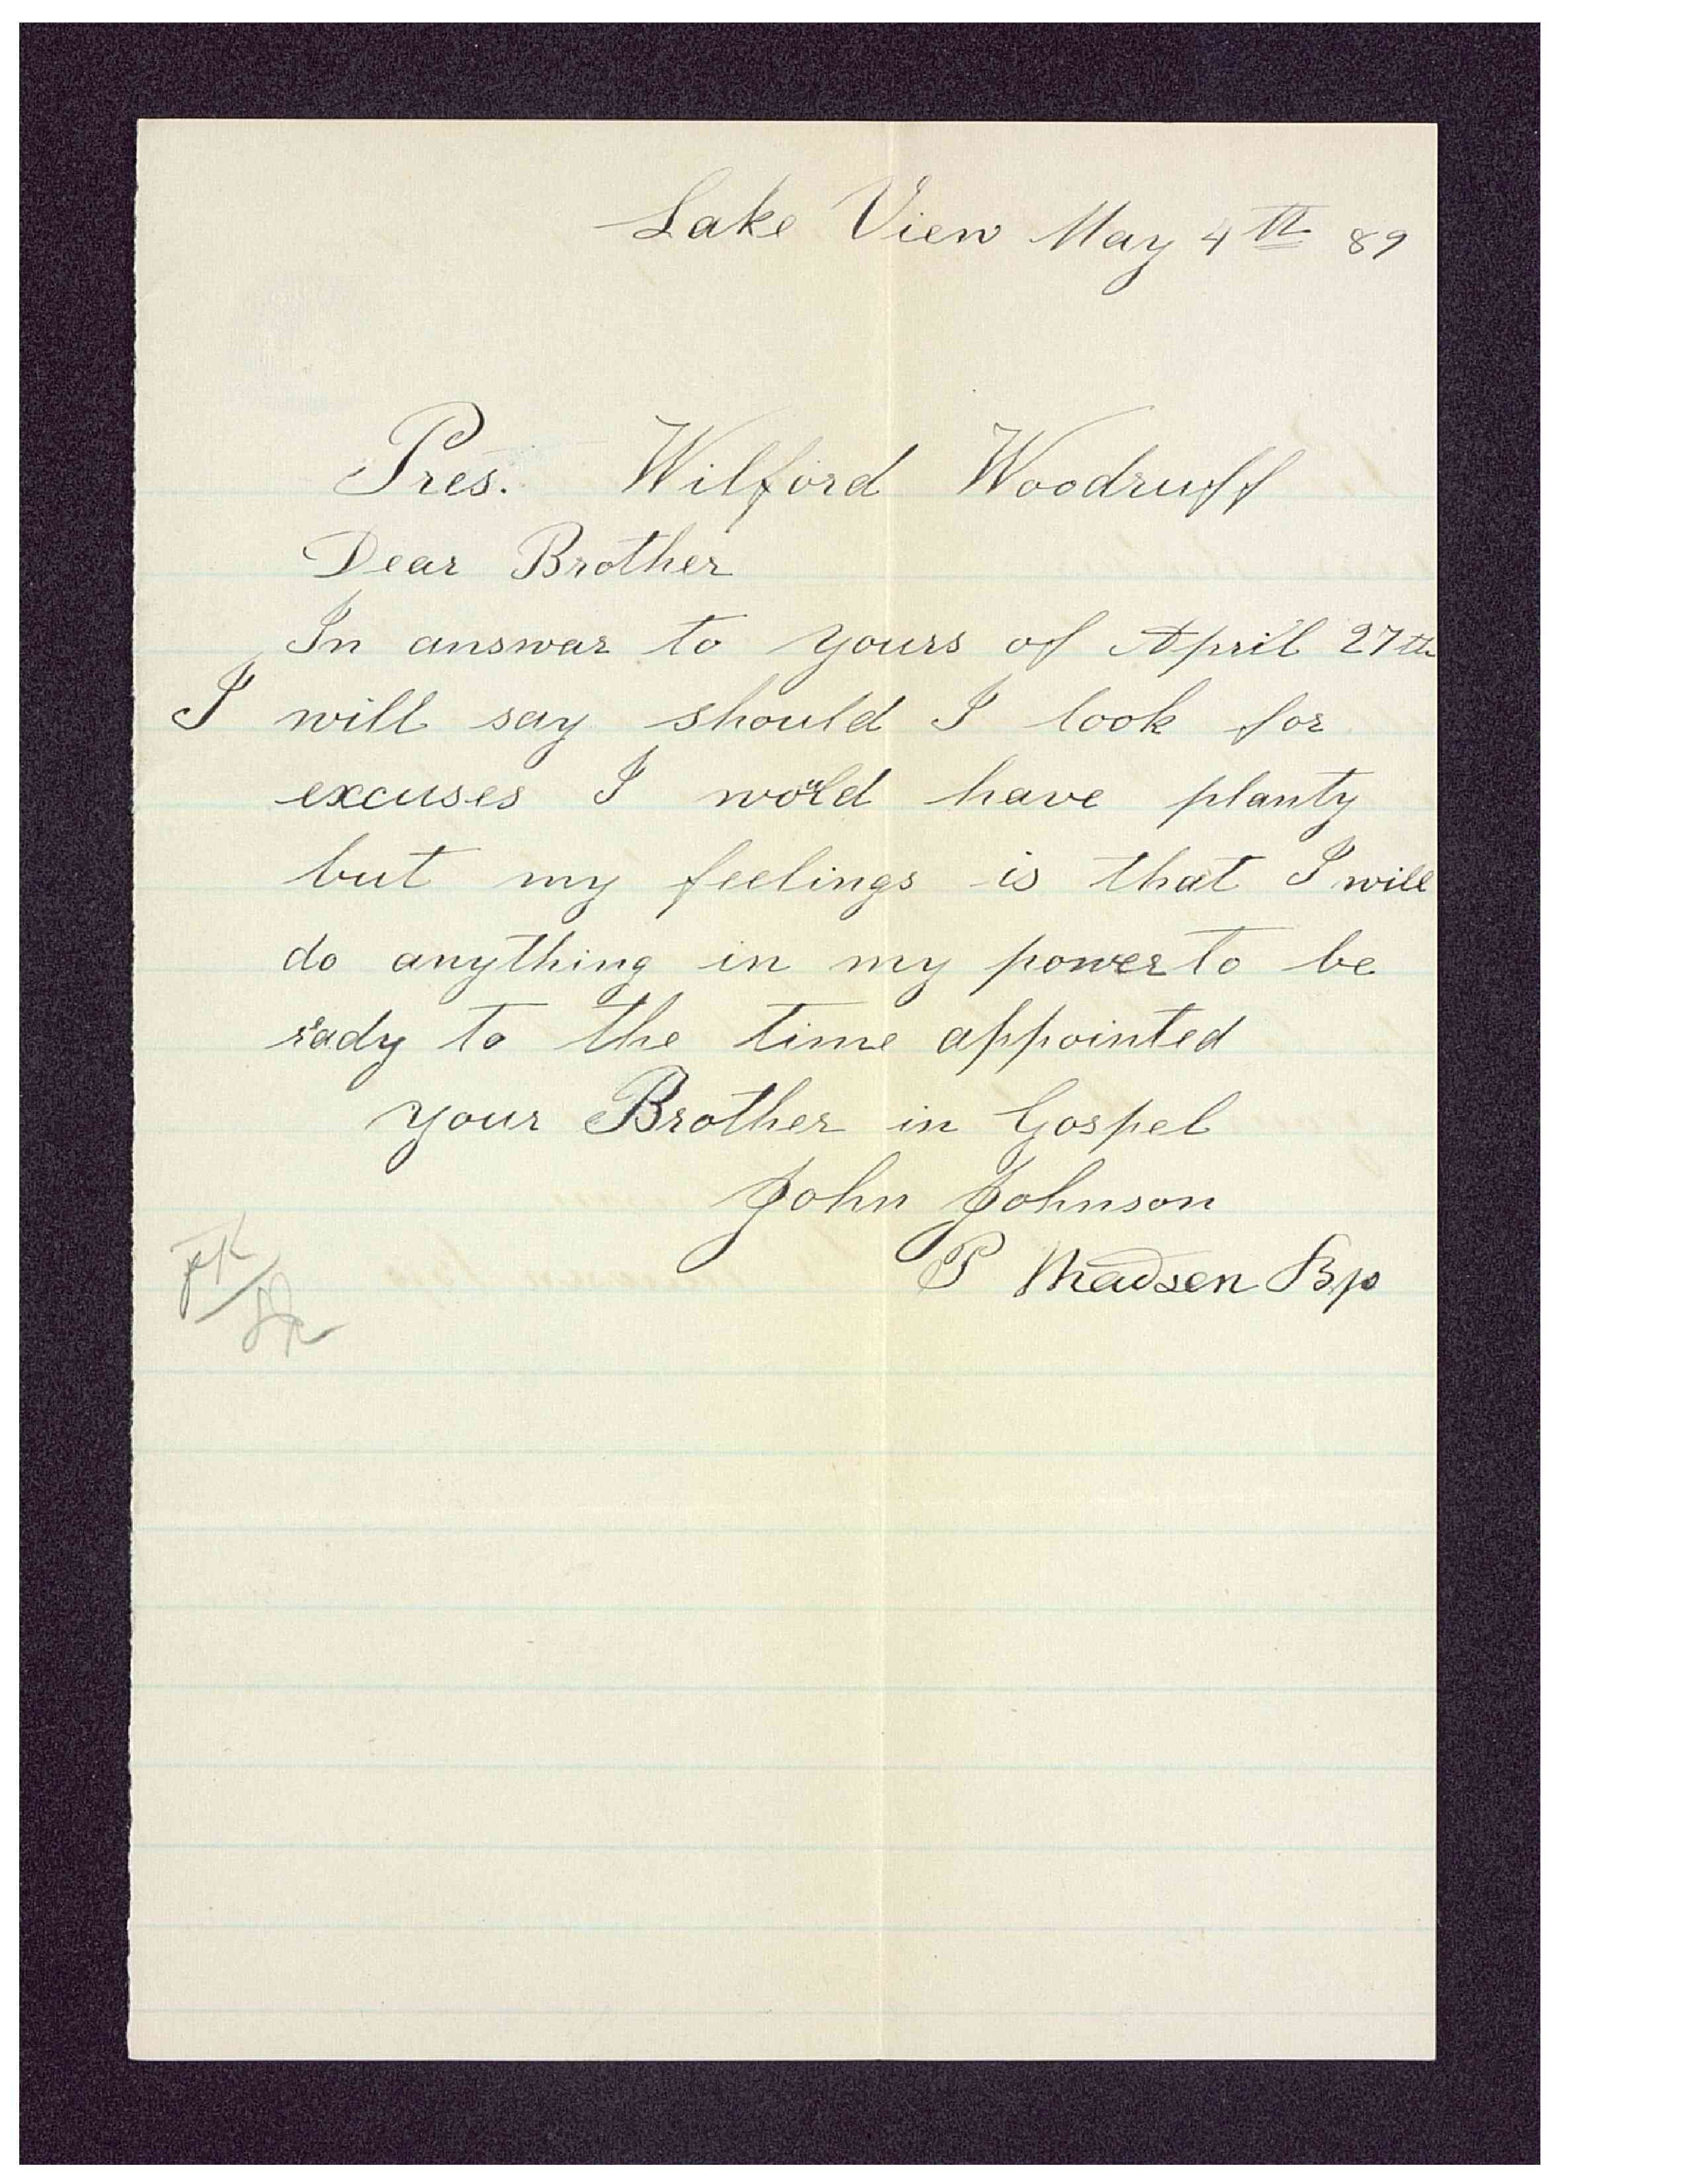 Lake View May 4th 89
Pres. Wilford Woodruff
Dear Brother
In answar to yours of April 27th
I will say should I look for
excuses I would have planty
but my feelings is that I will
do anything in my power to be
rady to the time appointed
your Brother in Gospel
John Johnson
P Madsen Bp